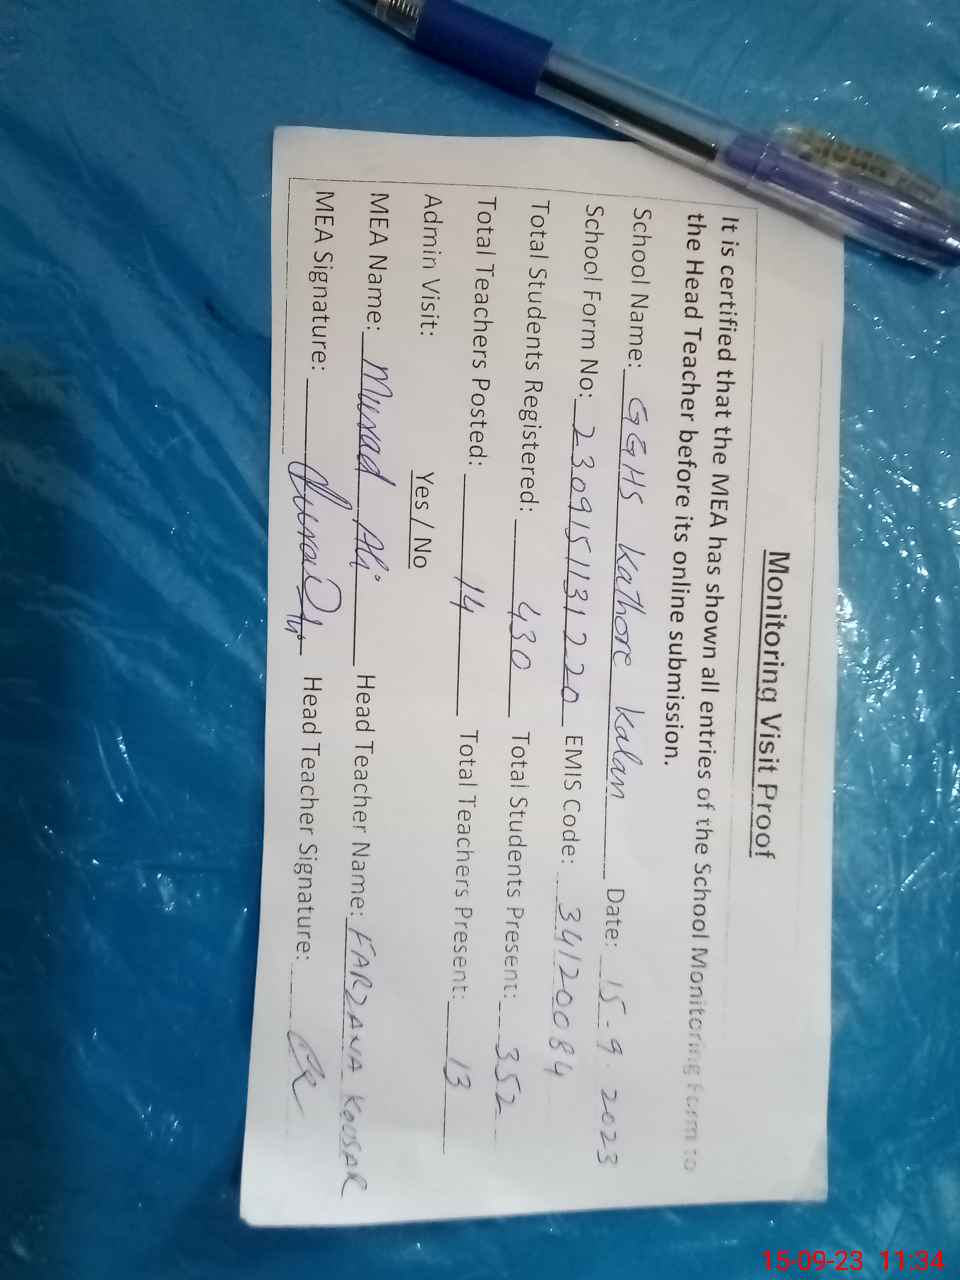 Monitoring Visit Proof
It is certified that the MEA has shown all entries of the School Monitoring Form to
the Head Teacher before its online submission.
School Name: GGHS Kathore Kalan Date: 15.9.2023
School Form No: 2309151131220 EMIS Code: 34120084
Total Students Registered: 430 Total Students Present: 352
Total Teachers Posted: 14 Total Teachers Present: 13
Admin Visit: Yes / No
MEA Name: Murad Ali Head Teacher Name: FARZANA KOUSAR
MEA Signature: Head Teacher Signature:
15-09-23 11:34